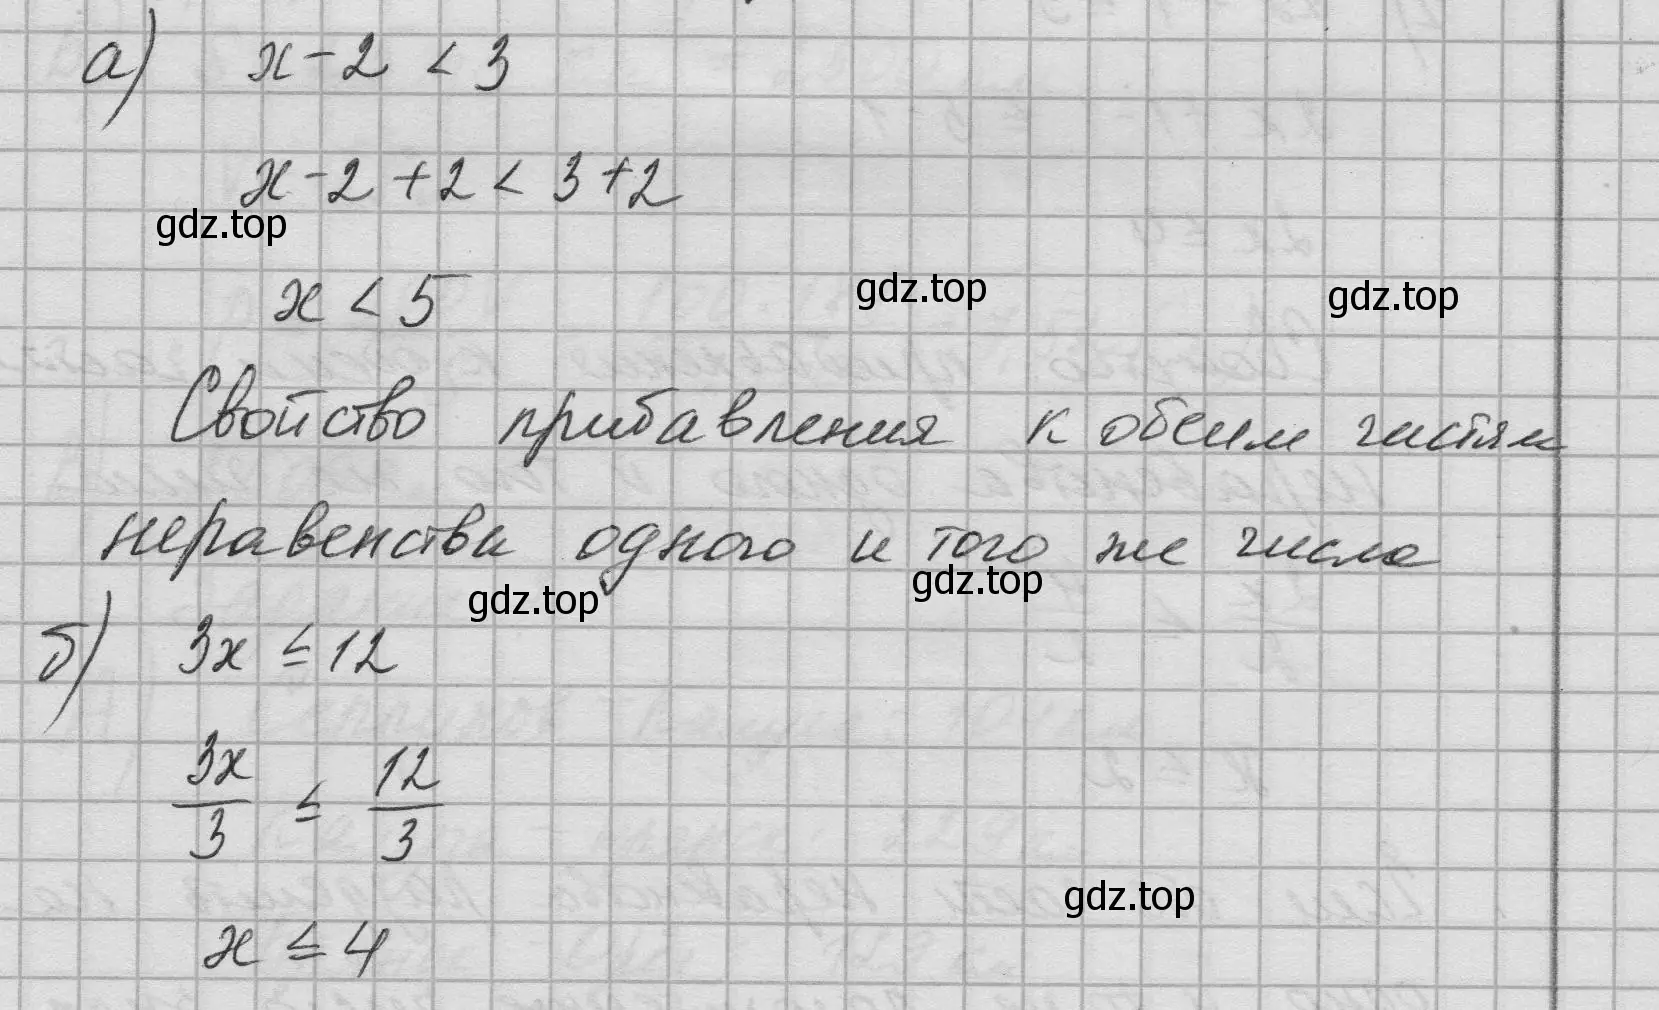 а) x - 2 < 3
x - 2 + 2 < 3 + 2
gdz.top
x < 5
gdz.top
gdz.top
Свойство прибавления к обеим частям
неравенства одного и того же числа
gdz.top
gdz.top
б) 3x ≤ 12
3x/3 ≤ 12/3
gdz.top
x ≤ 4